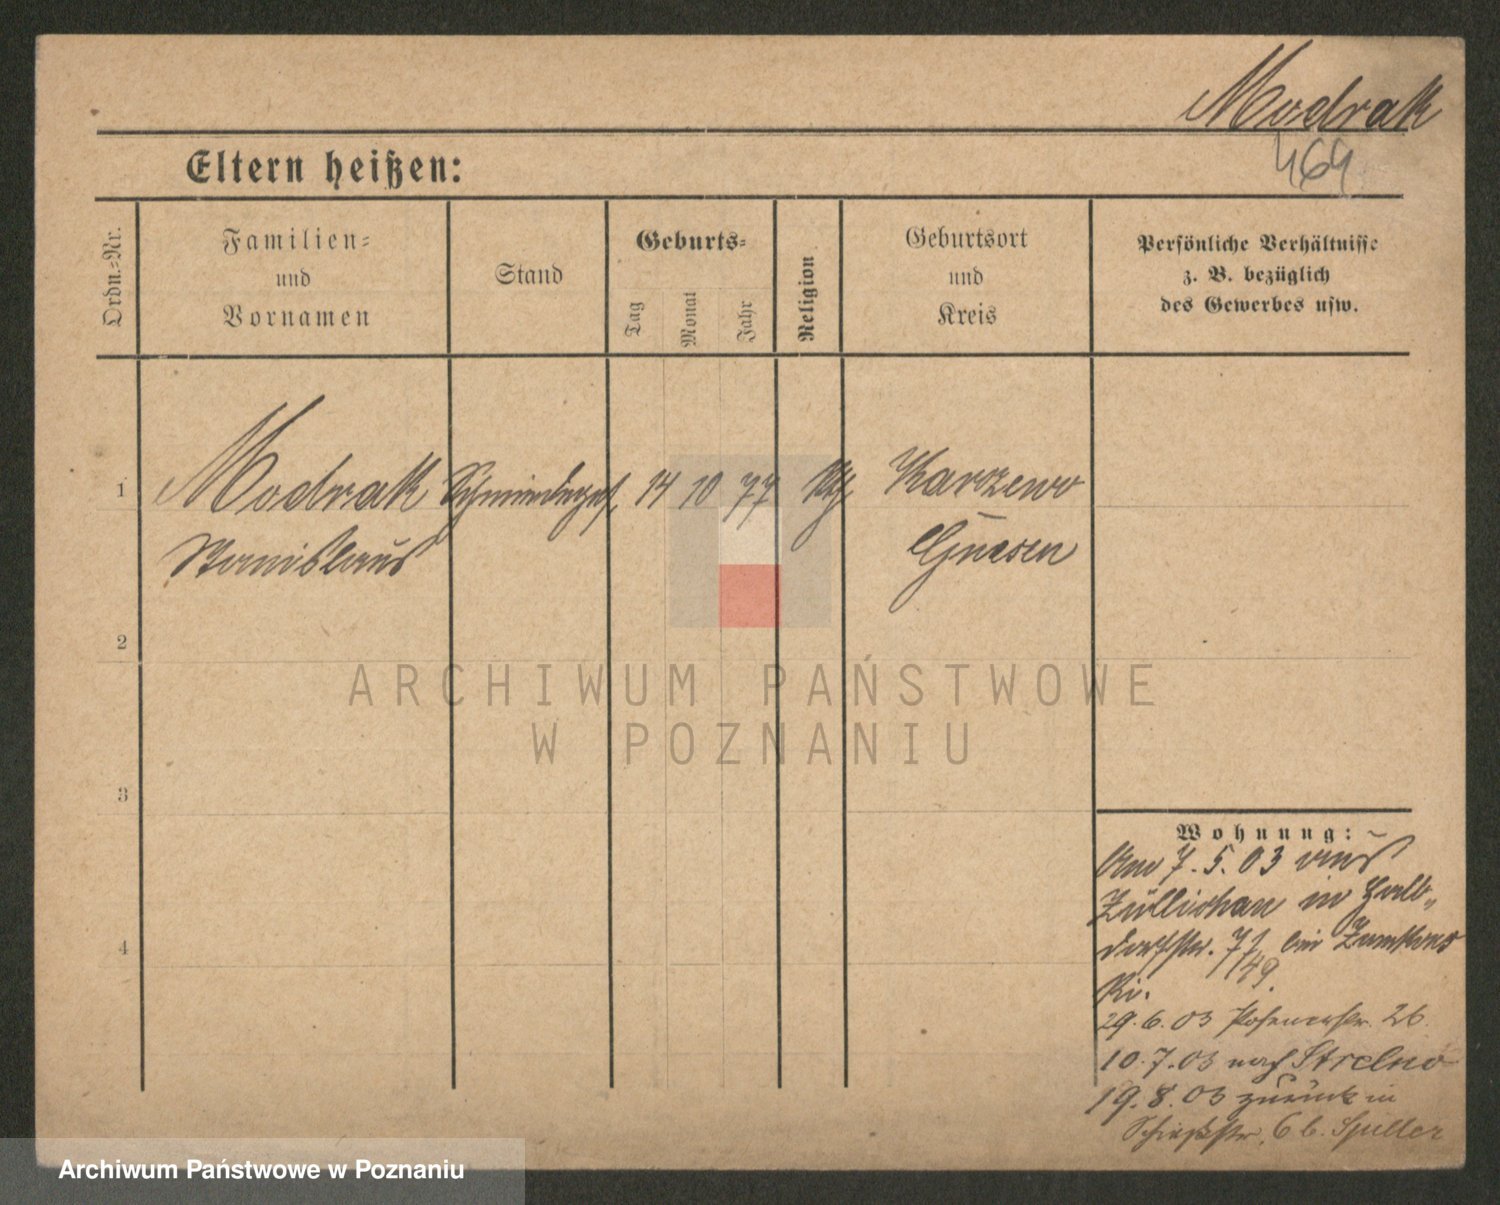 Modrak
464
Eltern heißen:
Ordn.-Nr.
Familien-
und
Vornamen
Stand
Geburts-
Tag
Monat
Jahr
Religion
Geburtsort
und
Kreis
Persönliche Verhältnisse
z. B. bezüglich
des Gewerbes usw.
1
Modrak Schmiedeges. 14 10 77 kth Karczewo
Stanislaus Gnesen
2
ARCHIWUM PAŃSTWOWE
W POZNANIU
3
Wohnung:
Am 7.5.03 aus
Züllichau in Halb-
dorfstr. 71 bei
149.
29.6.03 Posenerstr. 26
4
10.7.03 nach Strelno
19.8.03 zurück in
Schießstr. 6 b. Spiller
Archiwum Państwowe w Poznaniu